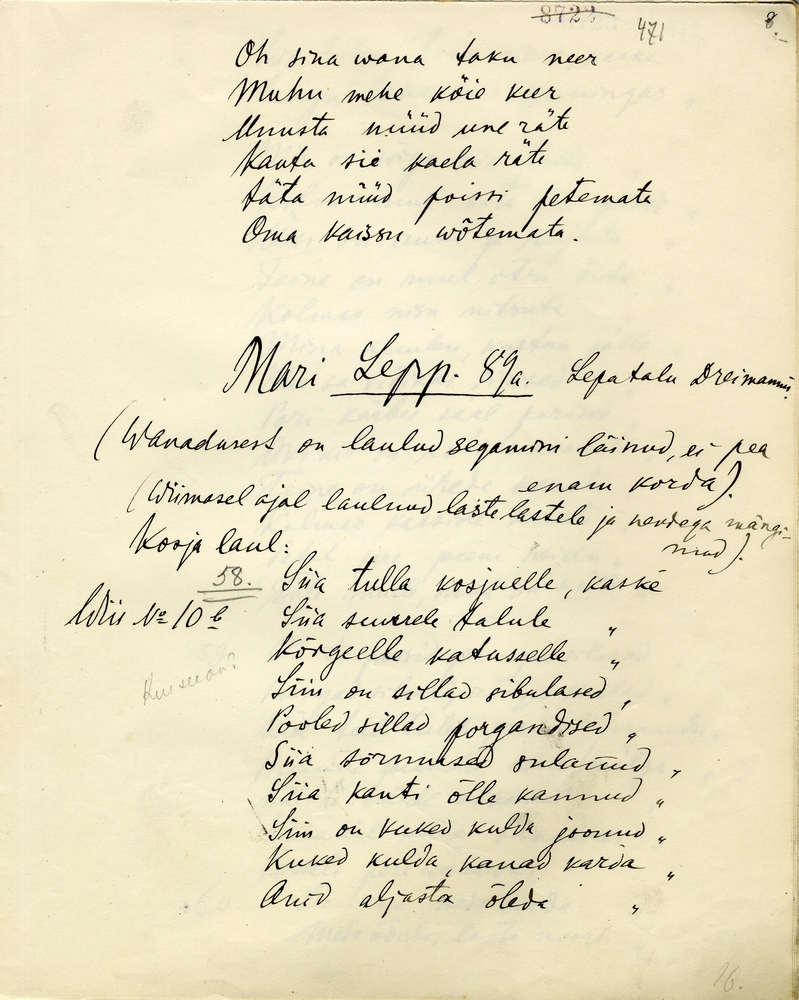 8722
471
8.
Oh sina wana taku neer
Muhu mehe köie keer
Unusta nüüd une räte
Kanta sie kaela räte
täta nüüd poissi petemata
Oma kaissu wõtemata.
Mari Lepp. 89a. Lepatalu Dreimanni
(Wanadusest on laulud segamini läinud, ei pea
enam korda).
(Wiimasel ajal laulnud laste lastele ja nendega mängi-
nud).
Kosja laul:
58. Siia tulla kosjuelle, kaske
Wiis No 10 b Siia suurele talule "
Kõrgeelle katusselle "
Kus seeon?
Siin on sillad sibulased "
Pooled sillad porgandised "
Siia sõrmused sulanud "
Siia kanti õlle kannud "
Siin on kuked kulda joonud "
Kuked kulda, kanad karda "
Anid aljasta õleda "
26.